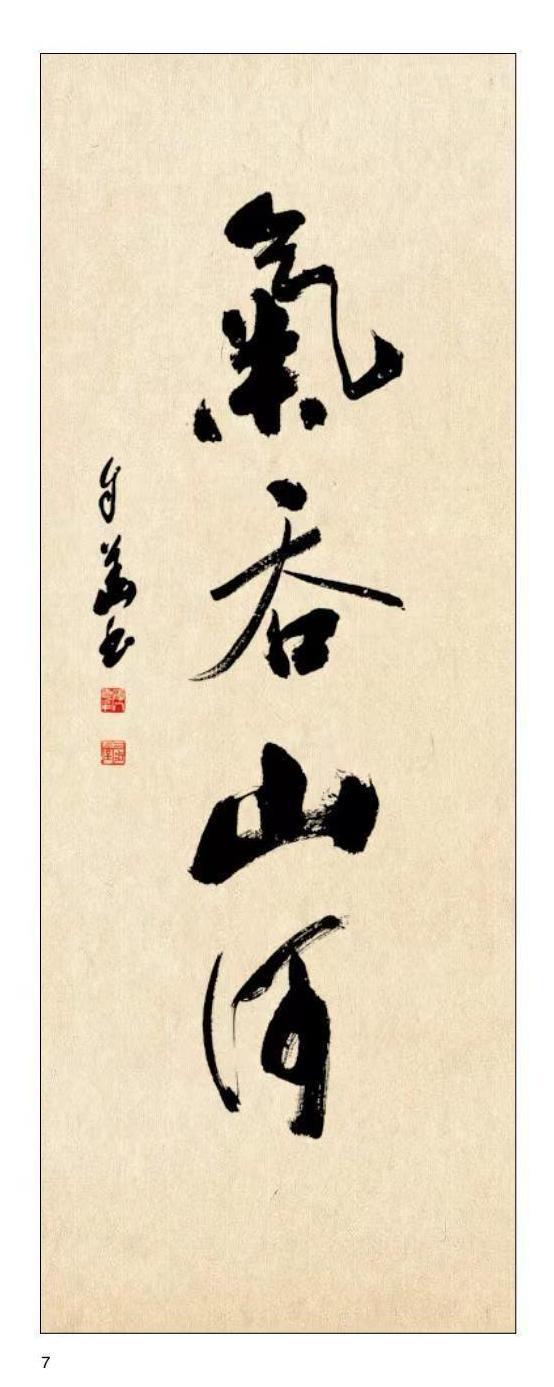 氣吞山河
7